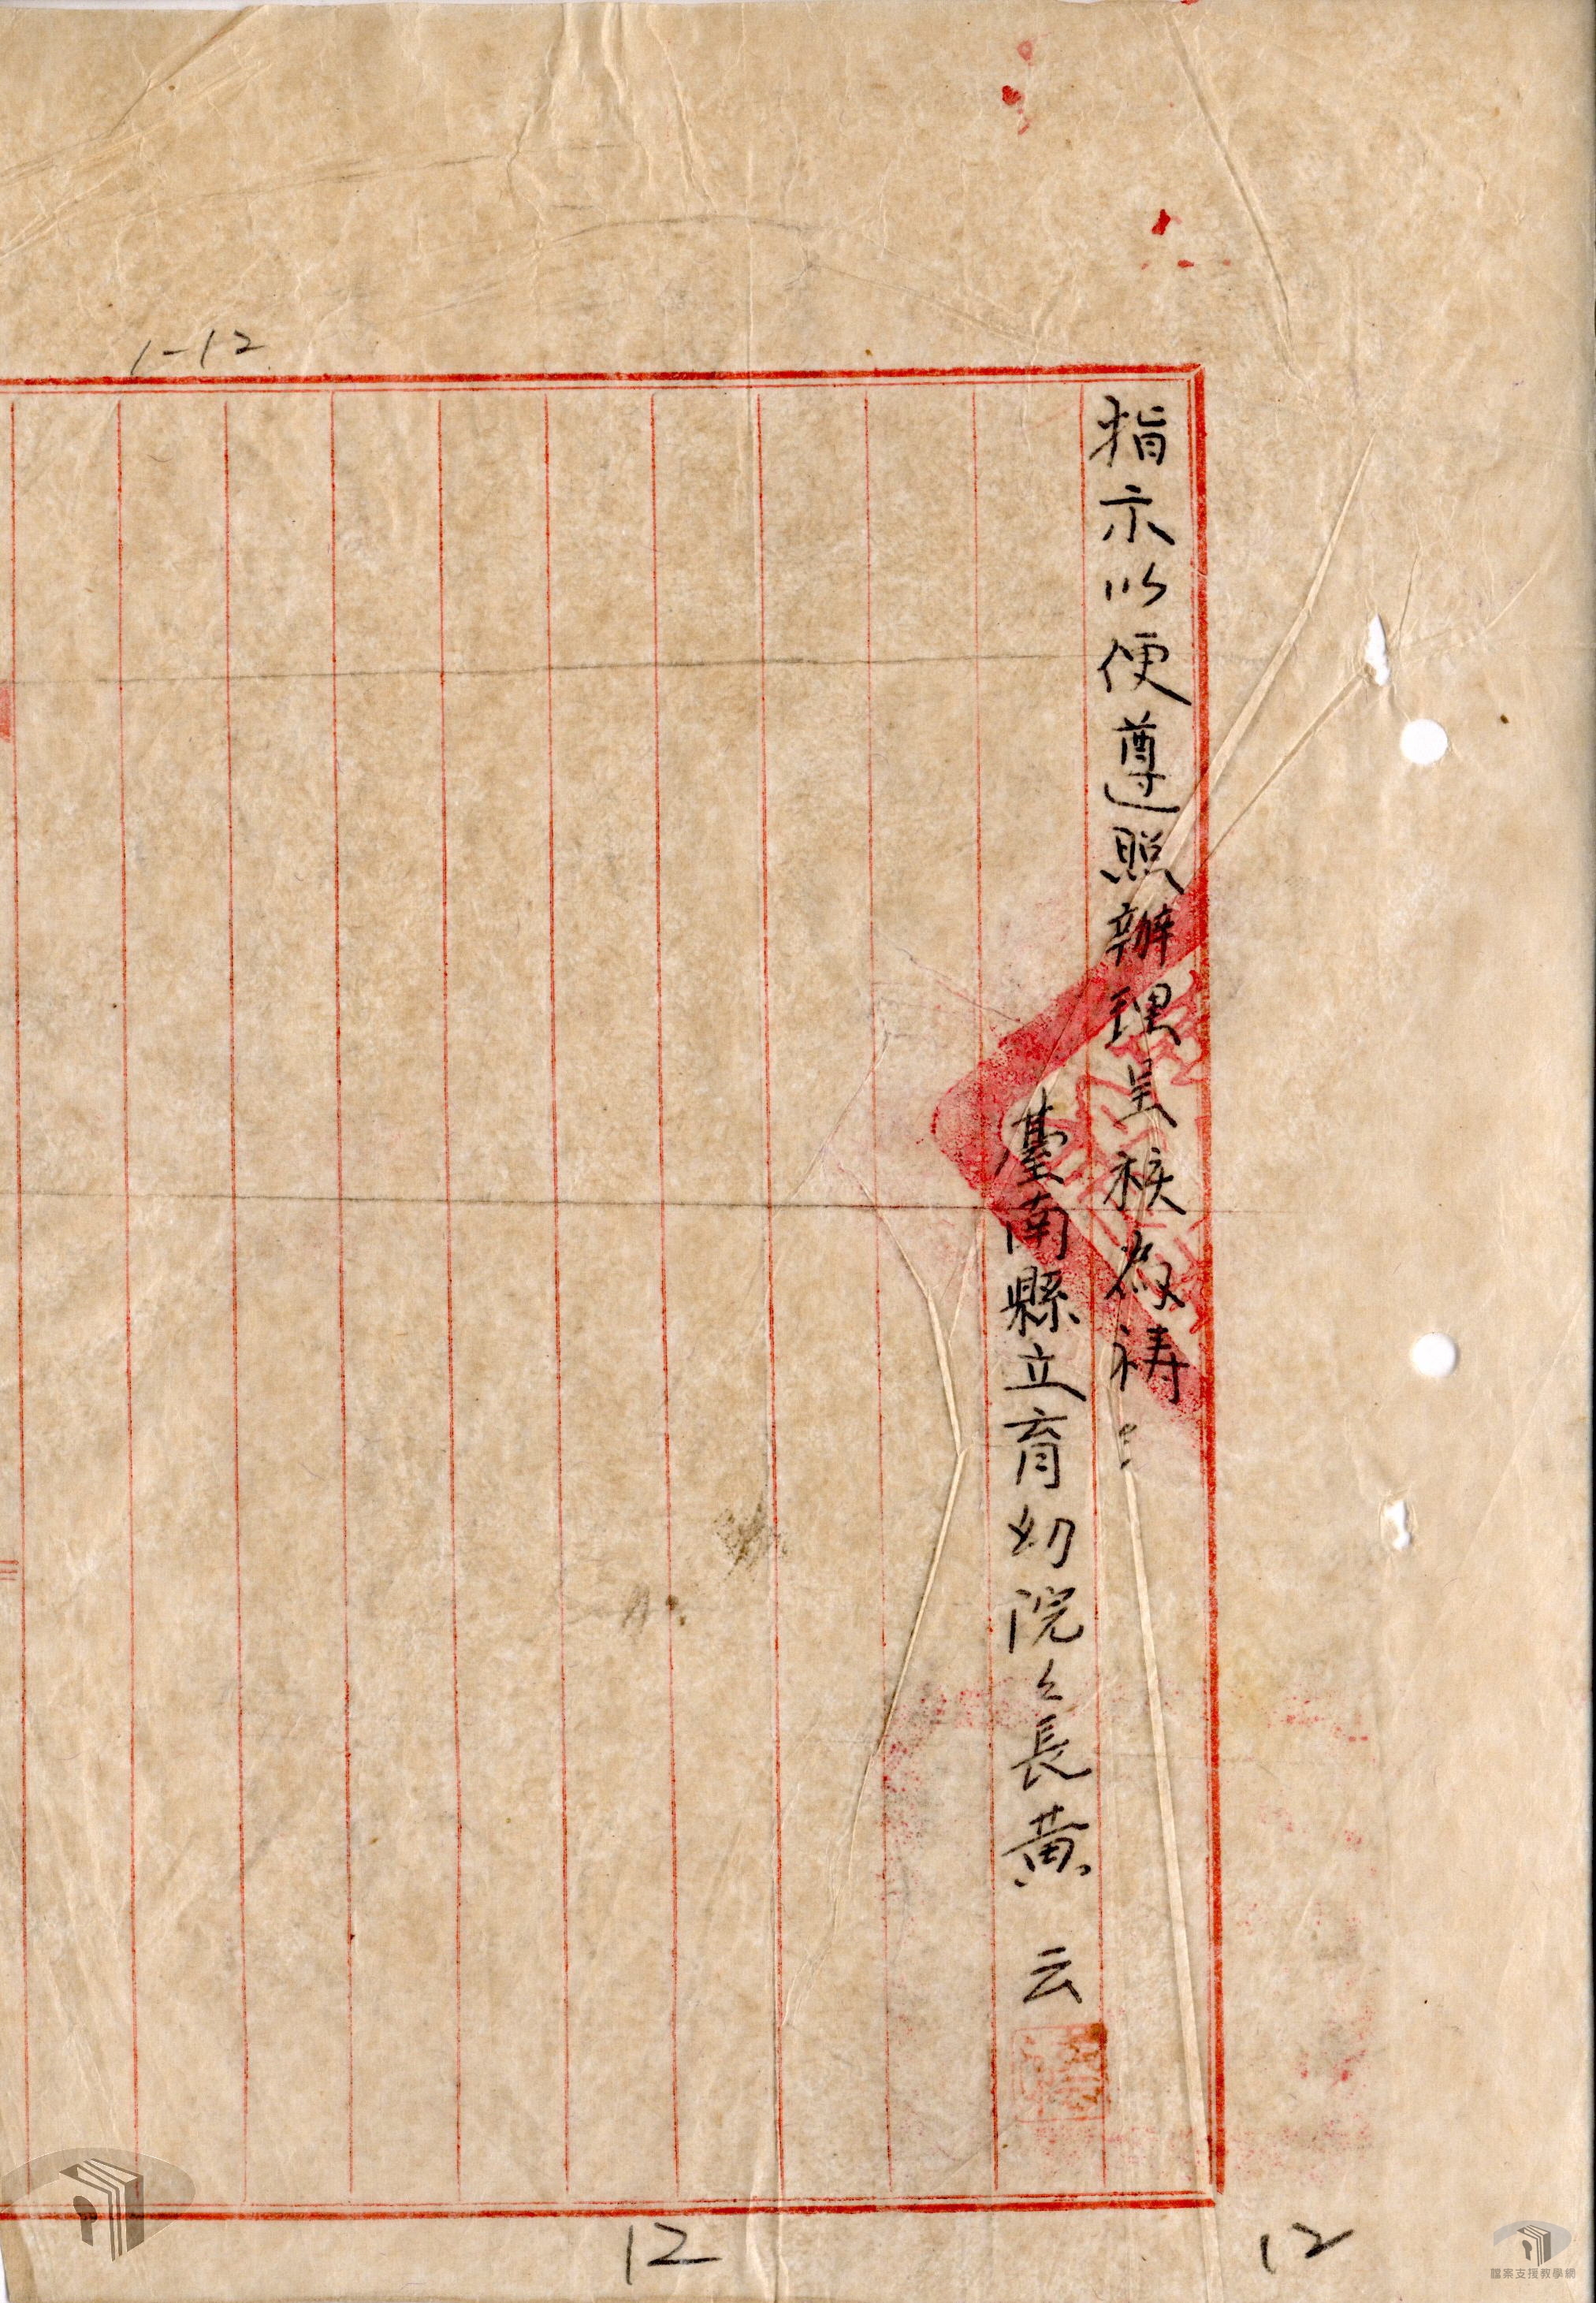 1-12
指示以便遵照辦理呈候為祷
臺南縣立育幼院々長黃 云
12
12
檔案支援教學網